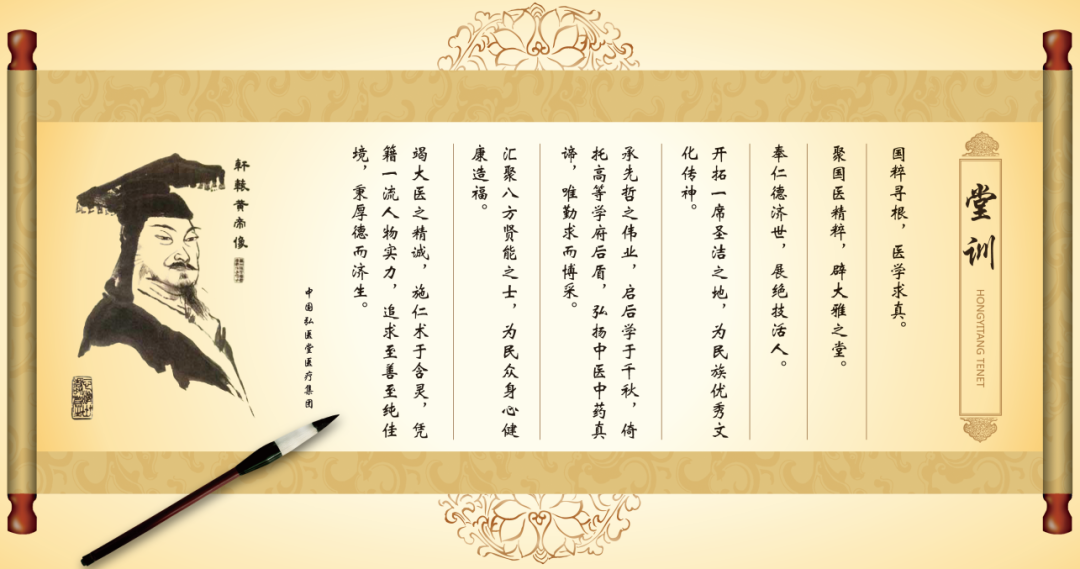 堂训
HONGYITANG TENET
国粹寻根，医学求真。
聚国医精粹，辟大雅之堂。
奉仁德济世，展绝技活人。
开拓一席圣洁之地，为民族优秀文
化传神。
承先哲之伟业，启后学于千秋，倚
托高等学府后盾，弘扬中医中药真
谛，唯勤求而博采。
汇聚八方贤能之士，为民众身心健
康造福。
竭大医之精诚，施仁术于含灵，凭
籍一流人物实力，追求至善至纯佳
境，秉厚德而济生。
中国弘医堂医疗集团
轩辕黄帝像